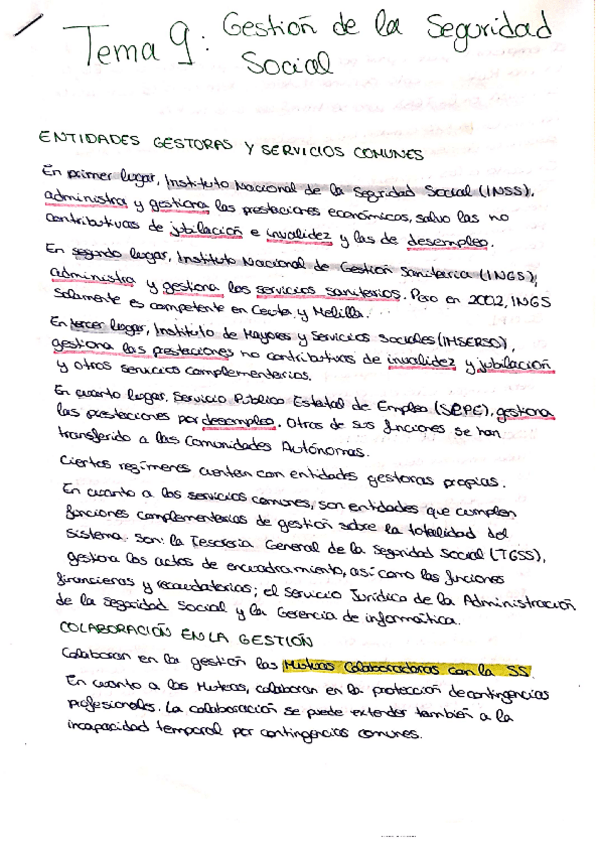 Tema 9: Gestión de la Seguridad
Social
ENTIDADES GESTORAS Y SERVICIOS COMUNES
En primer lugar, Instituto Nacional de la Seguridad Social (INSS),
administra y gestiona las prestaciones económicas, salvo las no
contributivas de jubilación e invalidez y las de desempleo.
En segundo lugar, Instituto Nacional de Gestión Sanitaria (INGS),
administra y gestiona los servicios sanitarios. Pero en 2002, INGS
solamente es competente en Ceuta y Melilla.
En tercer lugar, Instituto de Mayores y Servicios Sociales (IMSERSO),
gestiona las prestaciones no contributivas de invalidez y jubilación
y otros servicios complementarios.
En cuarto lugar, Servicio Público Estatal de Empleo (SEPE), gestiona
las prestaciones por desempleo. Otras de sus funciones se han
transferido a las Comunidades Autónomas.
Ciertos regímenes cuentan con entidades gestoras propias.
En cuanto a los servicios comunes, son entidades que cumplen
funciones complementarias de gestión sobre la totalidad del
sistema. Son: la Tesorería General de la Seguridad Social (TGSS),
gestiona los actos de encuadramiento, así como las funciones
financieras y recaudatorias; el Servicio Jurídico de la Administración
de la Seguridad Social y la Gerencia de informática.
COLABORACIÓN EN LA GESTIÓN
Colaboran en la gestión las Mutuas Colaboradoras con la SS.
En cuanto a las Mutuas, colaboran en la protección de contingencias
profesionales. La colaboración se puede extender también a la
incapacidad temporal por contingencias comunes.